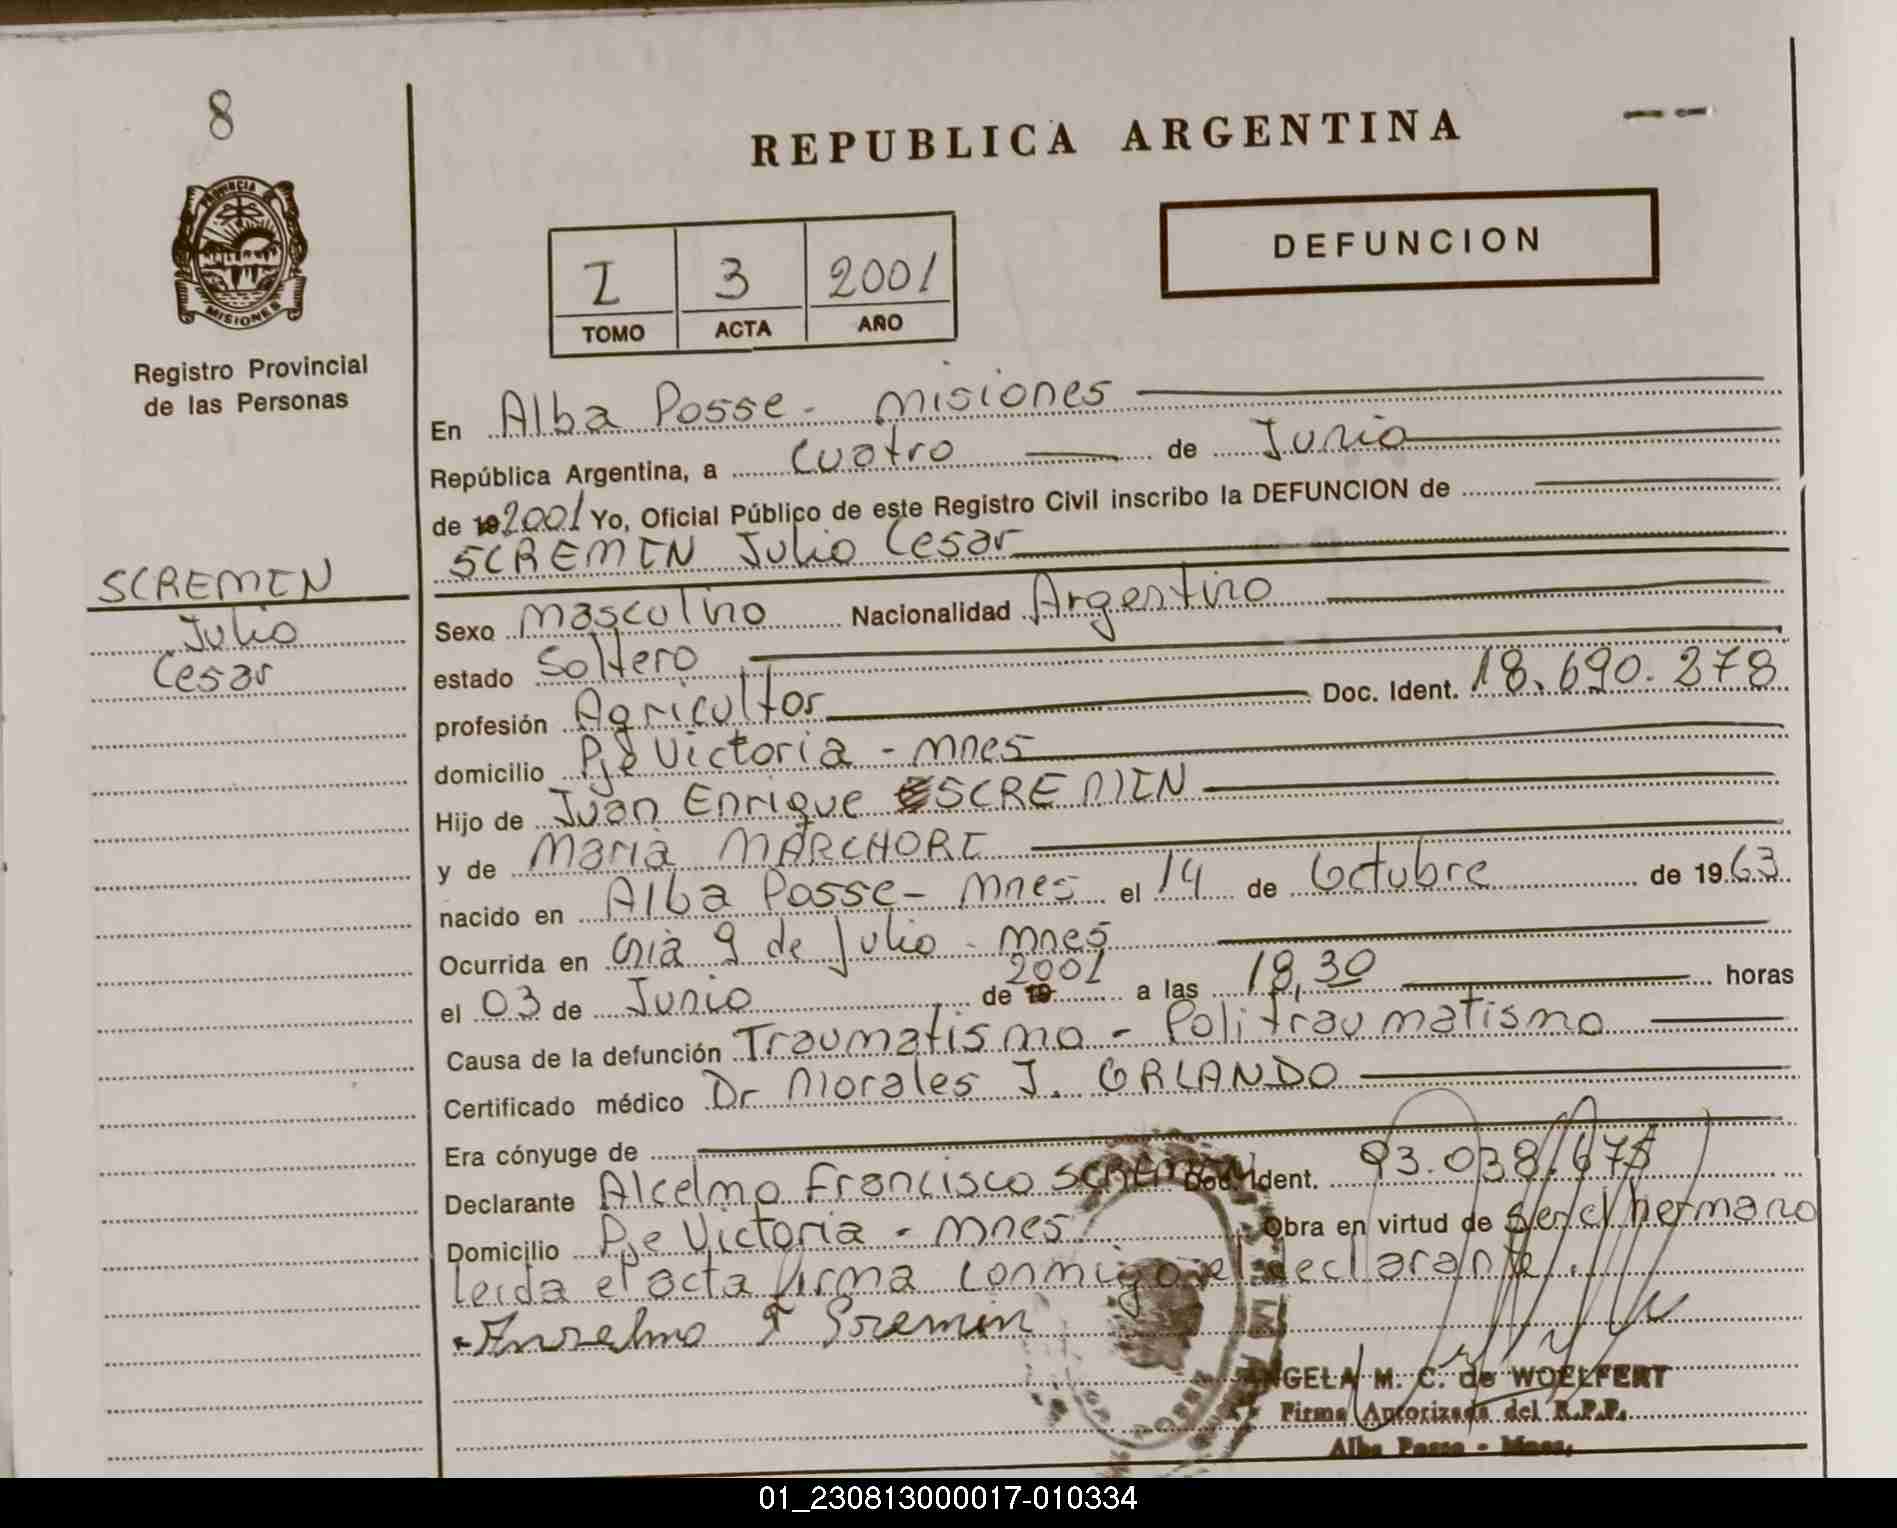 8
REPUBLICA ARGENTINA
PROVINCIA
MISIONES
Registro Provincial
de las Personas
DEFUNCION
I 3 2001
TOMO ACTA AÑO
En Alba Posse - Misiones
República Argentina, a cuatro de Junio
de 2001 Yo, Oficial Público de este Registro Civil inscribo la DEFUNCION de
SCREMIN Julio Cesar
SCREMIN
Julio
Cesar
Sexo masculino Nacionalidad Argentino
estado Soltero
profesión Agricultor Doc. Ident. 18.690.278
domicilio Pje Victoria - mnes
Hijo de Juan Enrique SCREMIN
y de Maria MARCHORI
nacido en Alba Posse - mnes el 14 de Octubre de 1963
Ocurrida en 9 de Julio - mnes
el 03 de Junio de 2001 a las 18,30 horas
Causa de la defunción Traumatismo - Politraumatismo
Certificado médico Dr Morales J. ORLANDO
Era cónyuge de
Declarante Alcelmo Francisco SCREMIN Doc. Ident. 93.038.675
Domicilio Pje Victoria - mnes Obra en virtud de Ser el hermano
leida el acta firma conmigo el declarante.
Anselmo F Sremin
ANGELA M. C. de WOELFERT
Firma Autorizada del R.P.P.
Alba Posse - Mnes.
01_230813000017-010334